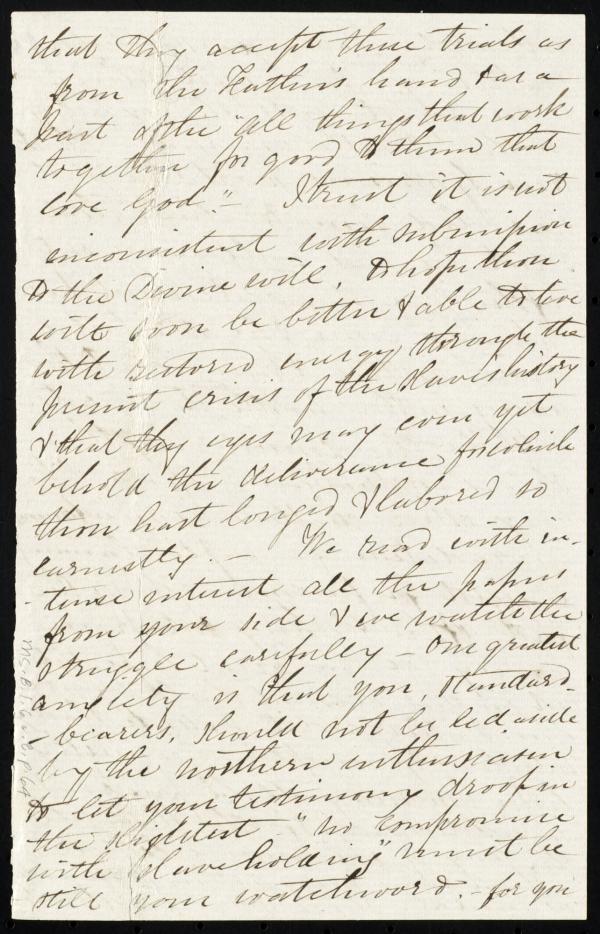 that they accept these trials as
from the Father's hand & as a
part of the "all things that work
together for good to them that
love God." – I trust it is not
inconsistent with submission
to the Divine will, to hope thou
wilt soon be better & able to live
with restored energy through the
present crisis of the slave's history
& that thy eyes may even yet
behold the deliverance for which
thou hast longed & labored so
earnestly. – We read with in-
-tense interest all the papers
from your side & we watch the
struggle carefully – Our greatest
anxiety is that you, standard-
-bearers, should not be led aside
by the northern enthusiasm
to let your testimony droop in
the slightest – "no compromise
with slaveholding" must be
still your watchword. – for you